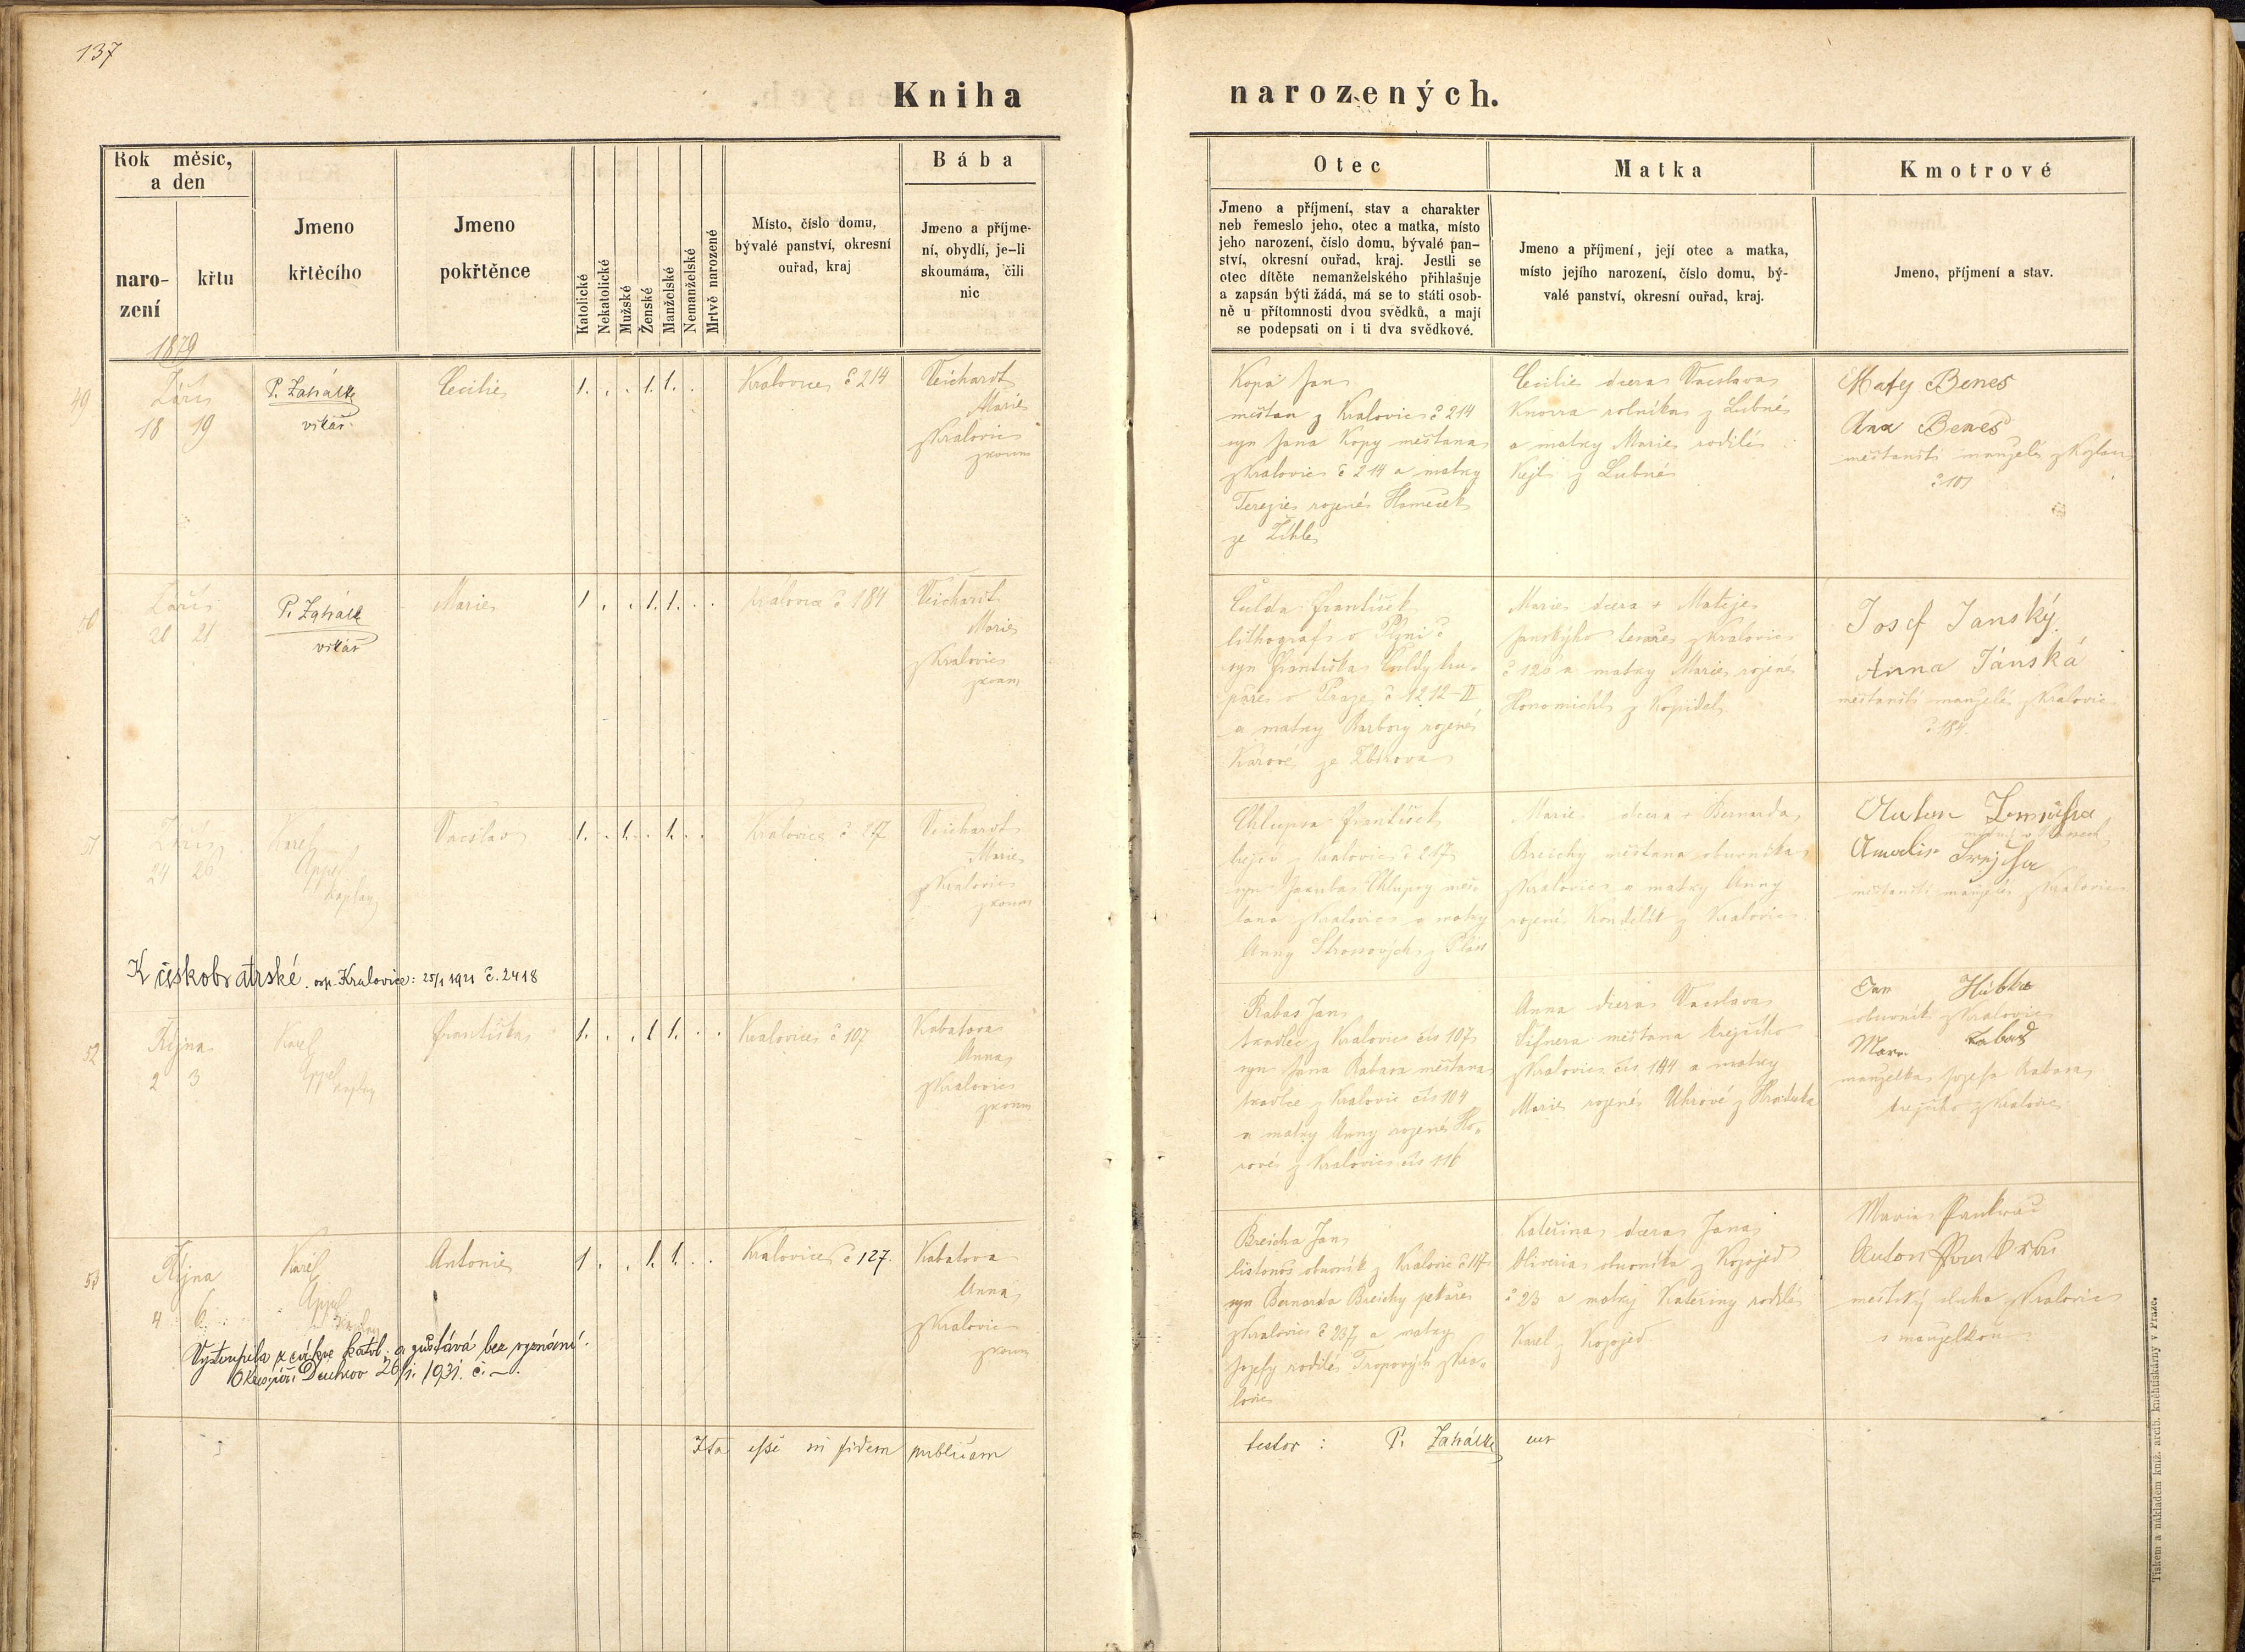 137
Kniha narozených.
Rok měsíc, a den
naro-
zení
křtu
Jmeno
křtěcího
Jmeno
pokřtěnce
Katolické
Nekatolické
Mužské
Ženské
Manželské
Nemanželské
Mrtvě narozené
Místo, číslo domu,
bývalé panství, okresní
ouřad, kraj
Bába
Jmeno a příjme-
ní, obydlí, je-li
skoumána, čili
nic
Otec
Jmeno a příjmení, stav a charakter
neb řemeslo jeho, otec a matka, místo
jeho narození, číslo domu, bývalé pan-
ství, okresní ouřad, kraj. Jestli se
otec dítěte nemanželského přihlašuje
a zapsán býti žádá, má se to státi osob-
ně u přítomnosti dvou svědků, a mají
se podepsati on i ti dva svědkové.
Matka
Jmeno a příjmení, její otec a matka,
místo jejího narození, číslo domu, bý-
valé panství, okresní ouřad, kraj.
Kmotrové
Jmeno, příjmení a stav.
1879
49
Září
18 19
P. Zahálka
vikář
Cecilie
1. . . 1. 1. .
Kralovice č 214
Veichardt
Marie
z Kralovic
zkoum
Kopa Jan
mešťan z Kralovic č 214
syn Jana Kopy mešťana
z Kralovic č 214 a matky
Terezie rozené Hameček
ze Žihle
Cecilie dcera Vacslava
Knorra rolníka z Lubné
a matky Marie rodilé
Kejl z Lubné
Matěj Beneš
Ana Beneš
mešťanští manželé z Kožlan
č 101
50
Září
20 21
P. Zahálka
vikář
Marie
1 . . 1. 1. . .
Kralovice č 184
Veichardt
Marie
z Kralovic
zkoum
Culda František
lithograf v Plzni č
syn Františka Culdy kru-
paře v Praze č 1212-II
a matky Barbory rozené
Kárové ze Zbirova
Marie dcera + Matěje
Janskýho tesaře z Kralovic
č 120 a matky Marie rozené
Honomichl z Kopidel
Josef Janský
Anna Jánská
mešťanští manželé z Kralovic
č 184.
51
Září
24 26
Karel
Appel
kaplan
Vacslav
1. . 1. . 1. . .
Kralovice č 217
Veichardt
Marie
z Kralovic
zkoum
Chlupsa František
krejčí z Kralovic č 217
syn Jakuba Chlupsy meš-
ťana z Kralovic a matky
Anny z Plas
Marie dcera + Bernarda
Breichy mešťana obuvníka
z Kralovic a matky Anny
rozené Kondelík z Kralovic.
Anton
Amalie
mešťanští manželé z Kralovic
K českobratrské. osp. Kralovice: 25/1 1921 č. 2418
52
Října
2 3
Karel
Appel kaplan
Františka
1. . . 1 1. . .
Kralovice č 107
Kabatova
Anna
z Kralovic
zkoum
Rabas Jan
tkadlec z Kralovic čís 107
syn Jana Rabasa mešťana
tkadlce z Kralovic čís 104
a matky Anny rozené Ho-
rové z Kralovic čís 116
Anna dcera Vacslava
Šifnera mešťana krejčího
z Kralovic čís 144 a matky
Marie rozené Uhrové z Hradiska
Jan Hubka
obuvník z Kralovic
manželka Josefa Rabasa
krejčího z Kralovic
53
Října
4 6
Karel
Appel
kaplan
Antonie
1 . . 1. 1. . .
Kralovice č 127.
Kabatova
Anna
z Kralovic
zkoum
Breicha Jan
listonoš obuvník z Kralovic č 117
syn Bernarda Breichy pekaře
z Kralovic č 237 a matky
Josefy rodilé Tropových z Kra-
lovic
Kateřina dcera Jana
Oliveria obuvníka z Kozojed
č 23 a matky Kateřiny rodilé
Karel z Kozojed
Marie
Anton
městský sluha z Kralovic
s manželkou
Vystoupila z církve katol. a zůstává bez vyznání.
Okres. úř. Duchcov 26/1. 1931. č. —.
Ita esse in fidem publicam testor : P. Zahálka
Tiskem a nákladem kníž. arcib. knihtiskárny v Praze.